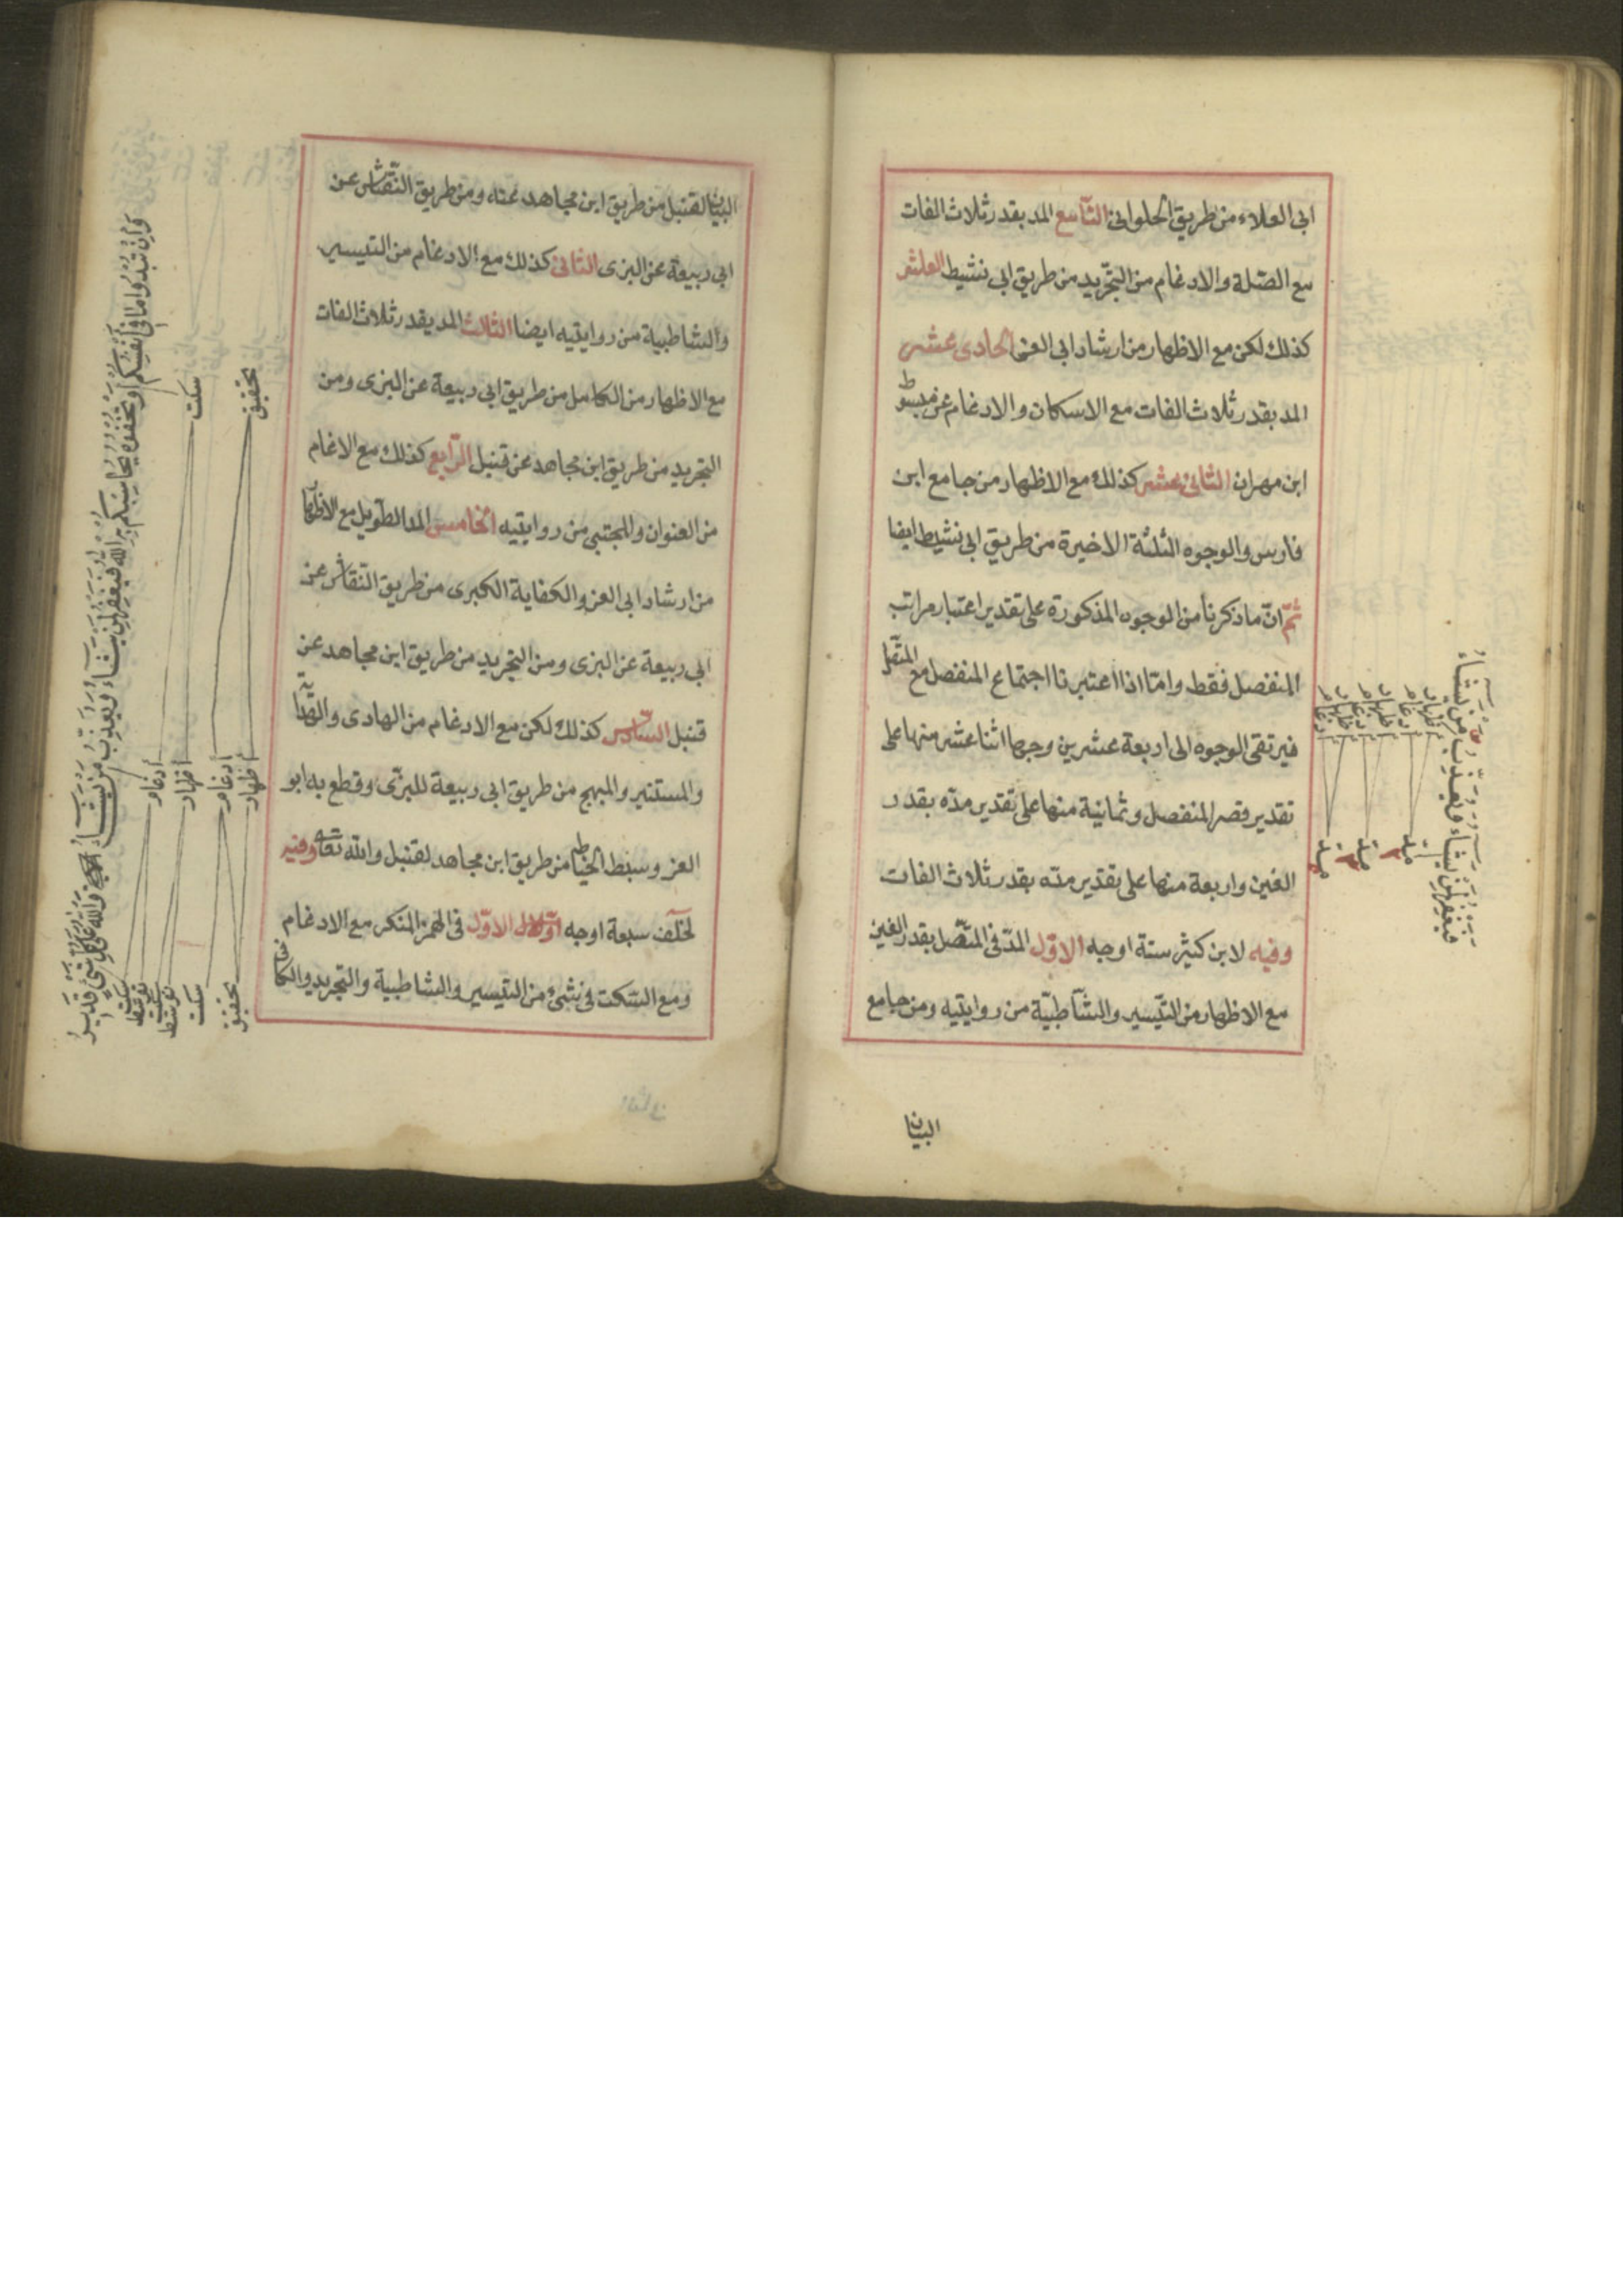 ابى العلاء من طريق الحلوانى التّاسع المد بقدر ثلاث الفات
مع الصّلة والادغام من التّجريد من طريق ابى نشيط العاشر
كذلك لكن مع الاظهار من ارشاد ابى العز الحادى عشر
المد بقدر ثلاث الفات مع الاسكان والادغام عن مبسوط
ابن مهران الثانى عشر كذلك مع الاظهار من جامع ابن
فارس والوجوه الثلثة الاخيرة من طريق ابى نشيط ايضا
ثمّ انّ ما ذكرنا من الوجوه المذكورة على تقدير اعتبار مراتب
المنفصل فقط وامّا اذا اعتبرنا اجتماع المنفصل مع المتّصل
فيرتقى الوجوه الى اربعة عشرين وجها اثنا عشر منها على
تقدير قصر المنفصل وثمانية منها على تقدير مدّه بقدر
الفين واربعة منها على تقدير مدّه بقدر ثلاث الفات
وفيه لابن كثير ستة اوجه الاوّل المدّ فى المتّصل بقدر الفين
مع الاظهار من التّيسير والشّاطبيّة من روايتيه ومن جامع
البيان
فيغفر لمن يشاء ويعذّب من يشاء
اظهار ادغام اظهار ادغام اظهار ادغام
البيان لقنبل من طريق ابن مجاهد عنه ومن طريق النّقاش عن
ابى ربيعة عن البزى الثانى كذلك مع الادغام من التيسير
والشاطبية من روايتيه ايضا الثالث المد بقدر ثلاث الفات
مع الاظهار من الكامل من طريق ابى ربيعة عن البزى ومن
التجريد من طريق ابن مجاهد عن قنبل الرّابع كذلك مع الاغام
من العنوان والمجتبى من روايتيه الخامس المد الطّويل مع الاظهار
من ارشاد ابى العز والكفاية الكبرى من طريق النّقاش عن
ابى ربيعة عن البزى ومن التجريد من طريق ابن مجاهد عن
قنبل السّادس كذلك لكن مع الادغام من الهادى والهداية
والمستنير والمبهج من طريق ابى ربيعة للبزّى وقطع به ابو
العز وسبط الخياط من طريق ابن مجاهد لقنبل والله تعالى وفيه
لخلف سبعة اوجه الاوّل فى الهمز المنكر مع الادغام
ومع السّكت فى شئ من التيسير والشاطبية والتجريد والكافى
وان تبدوا ما فى انفسكم او تخفوه يحاسبكم به الله فيغفر لمن يشاء ويعذب من يشاء والله على كل شئ قدير
تحقيق سكت
اظهار ادغام اظهار ادغام
تحقيق سكت توسط سكت توسط سكت